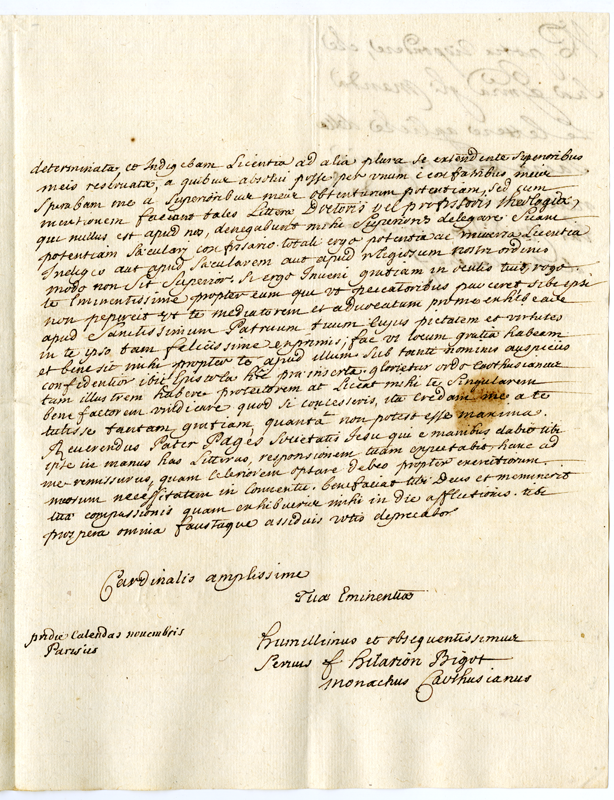 determinata, et Indigebam Licentia ad alia plura se extendente superioribus
meis reservata, a quibus absolvi posse per unum e confratribus meis
sperabam me a superioribus meis obtenturum potentiam, sed cum
mentionem faciant tales Litteræ Doctoris vel professoris theologiæ,
qui nullus est apud nos, denegabunt mihi superiores delegare suam
potentiam sæculari confessario. totali ergo potentia ac universa Licentia
Indigeo aut apud sæcularem aut apud religiosum nostri ordinis
modo non sit superior. si ergo Inveni gratiam in oculis tuis, rogo
te Eminentissime propter eum qui ut peccatoribus parceret sibi ipsi
non pepercit ut te mediatorem et advocatum pro me exhibeas
apud sanctissimum Patruum tuum cujus pietatem et virtutes
in te ipso tam felicissime exprimis; fac ut locum gratiæ habeam
et bene sit mihi propter te apud illum sub tanti nominis auspiciis
confidentior ibit Epistola hic præinserta. glorietur ordo Carthusianus
tam illustrem habere protectorem at Liceat mihi te singularem
benefactorem vindicare quod si concesseris, ita credam me a te
tulisse tantam gratiam, quanta non potest esse maxima.
Reverendus Pater Pagès societatis Jesu qui e manibus dabit tibi
ipse in manus has Litteras, responsionem tuam expectabit, hanc ad
me remissurus, quam celeriorem optare debeo propter exercitiorum
meorum necessitatem in Conventu. benefaciat tibi Deus et meminerit
tuæ compassionis quam exhibueris mihi in die afflictionis. tibi
prospera omnia faustaque assiduis votis deprecabor.
Cardinalis amplissime
Tuæ Eminentiæ
pridie Calendas novembris
Parisiis
humillimus et obsequentissimus
servus f. hilarion Bigot
monachus Carthusianus